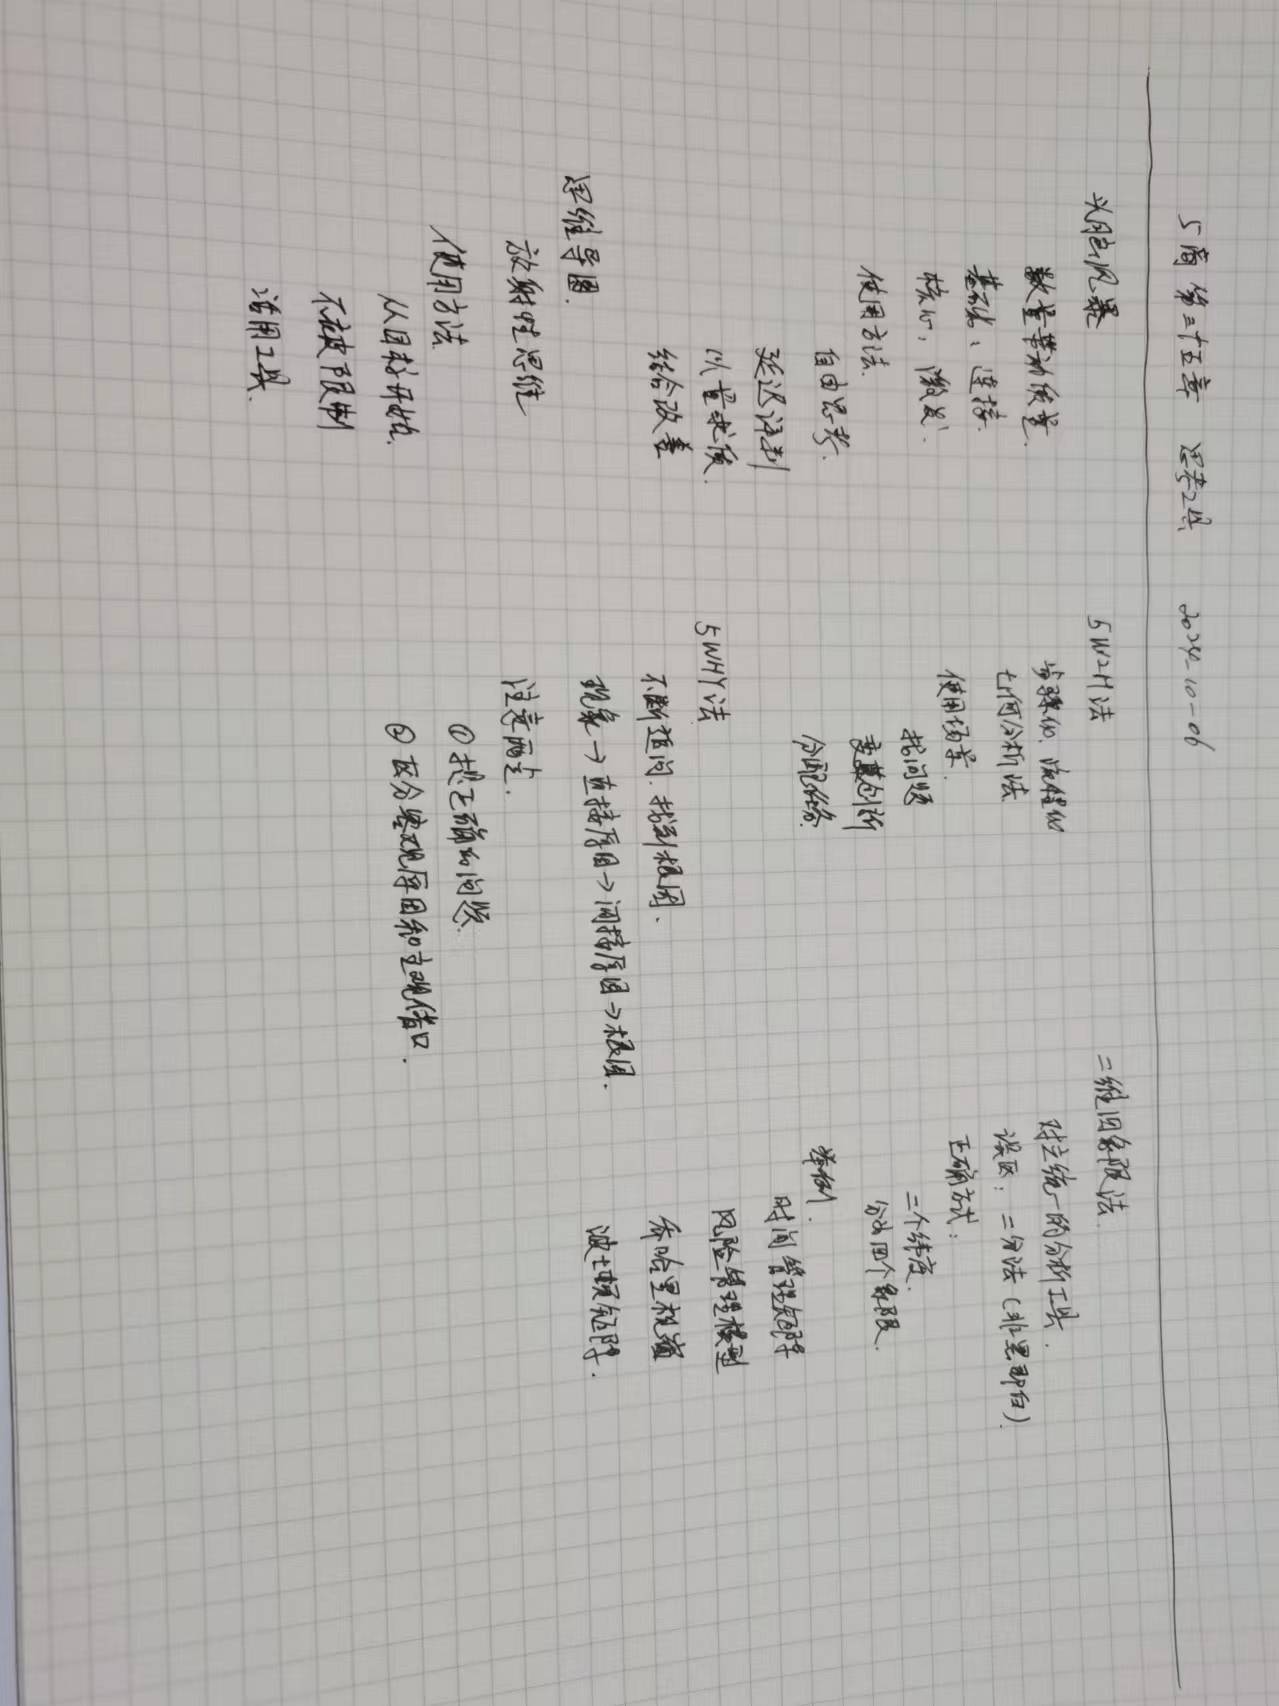 5商 第三十五章 思考工具 2024-10-06
头脑风暴
数量带动质量
基础：连接
核心：激发
使用方法
自由思考
延迟评判
以量求质
结合改善
思维导图
放射性思维
使用方法
从目标开始
不应被限制
活用工具
5W2H法
步骤化、流程化
七何分析法
使用场景
找问题
变革创新
分配任务
5WHY法
不断追问，找到根因
现象→直接原因→间接原因→根因
注意两点
①找正确的问题
②区分客观原因和主观借口
二维四象限法
对立统一的分析工具
误区：二分法（非黑即白）
正确方式：
二个纬度
分为四个象限
举例
时间管理矩阵
风险管理模型
乔哈里视窗
波士顿矩阵